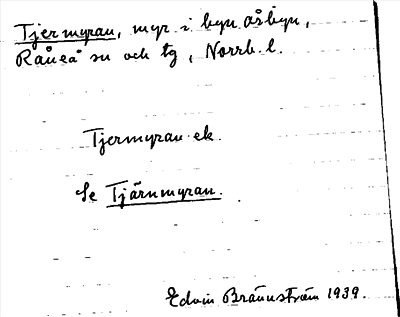 Tjermyran, myr i byn Åsbyn,
Råneå sn och tg, Norrb. l.
Tjermyran ek.
Se Tjärnmyran.
Edvin Brännström 1939.